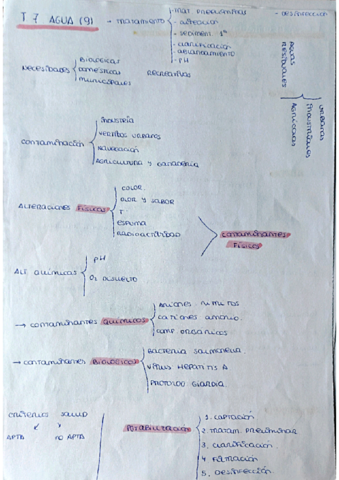 T 7 AGUA (9) → TRATAMIENTO
- PH
NECESIDADES
BIOLÓGICAS
DOMÉSTICAS
MUNICIPALES
RECREATIVAS
AGUAS
RESIDUALES
URBANAS
INDUSTRIALES
AGRÍCOLAS
CONTAMINACIÓN
INDUSTRIA
VERTIDOS URBANOS
NAVEGACIÓN
AGRICULTURA Y GANADERÍA
ALTERACIONES FÍSICAS
COLOR
OLOR Y SABOR
Tª
ESPUMA
RADIOACTIVIDAD
CONTAMINANTES
FÍSICOS
ALT. QUÍMICAS
PH
O2 DISUELTO
→ CONTAMINANTES QUÍMICOS
ANIONES. NITRITOS
CATIONES AMONIO.
COMP. ORGÁNICOS
→ CONTAMINANTES BIOLÓGICOS
BACTERIA SALMONELLA
VIRUS HEPATITIS A
PROTOZOO GIARDIA.
CRITERIOS SALUD
APTA NO APTA
POTABILIZACIÓN
1. CAPTACIÓN
2. TRATAM. PRELIMINAR
3. CLARIFICACIÓN
4 FILTRACIÓN
5. DESINFECCIÓN.